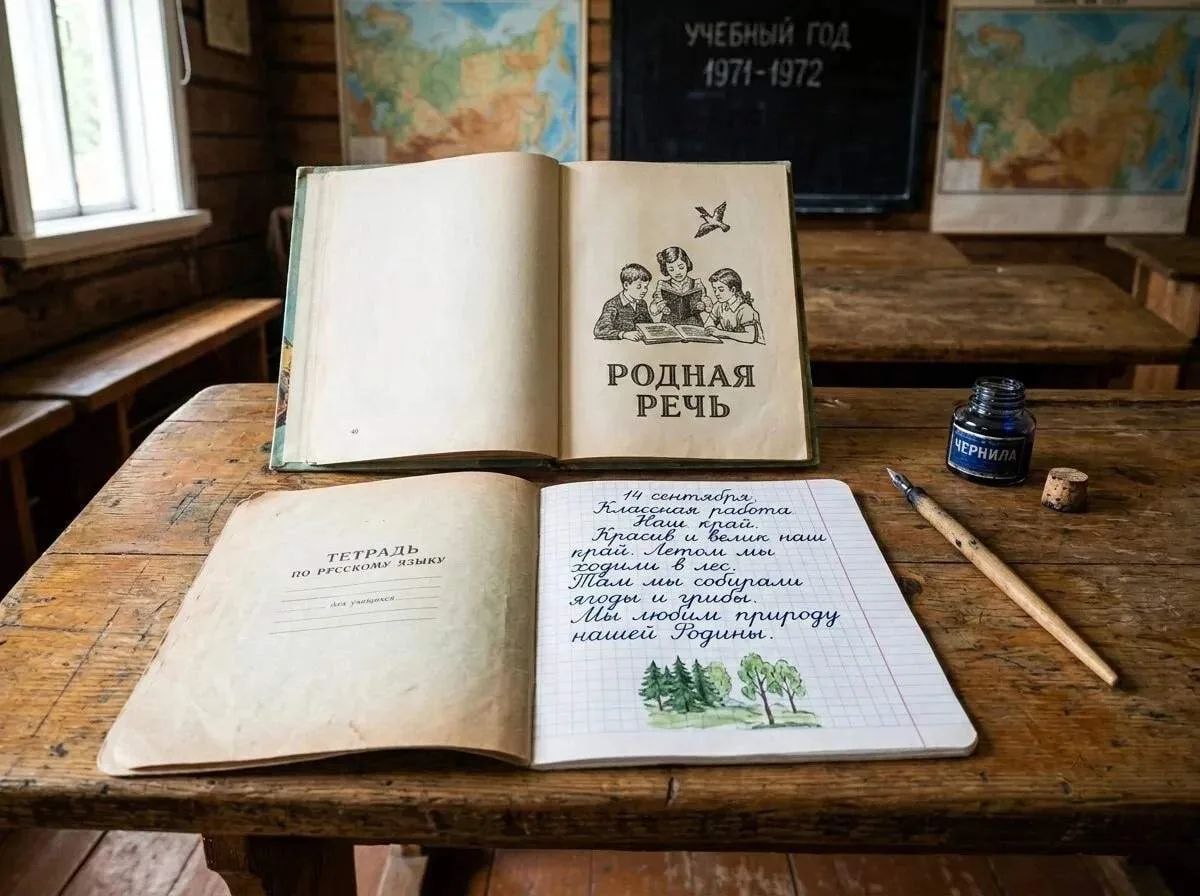 УЧЕБНЫЙ ГОД
1971-1972
40
РОДНАЯ
РЕЧЬ
ЧЕРНИЛА
ТЕТРАДЬ
ПО РУССКОМУ ЯЗЫКУ
14 сентября.
Классная работа
Наш край.
Красив и велик наш
край. Летом мы
ходили в лес.
Там мы собирали
ягоды и грибы.
Мы любим природу
нашей Родины.